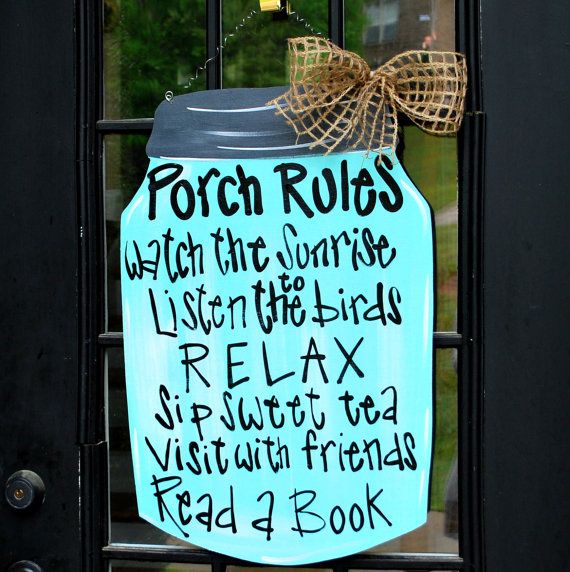 Porch Rules
Watch the Sunrise
Listen to the birds
RELAX
Sip sweet tea
Visit with friends
Read a Book